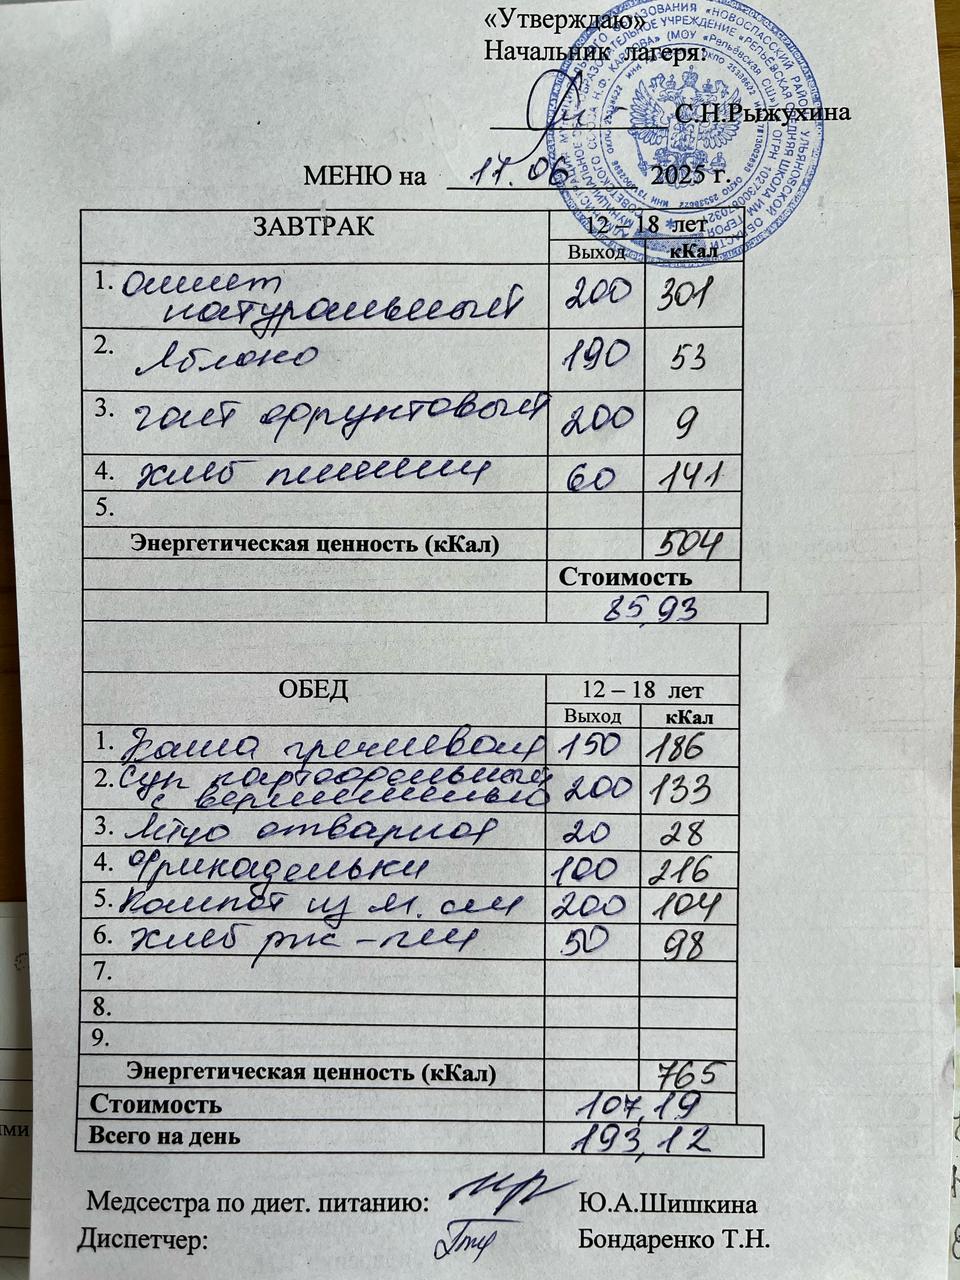 «Утверждаю»
Начальник лагеря:
С.Н.Рыжухина
МЕНЮ на 17.06 2025 г.
ЗАВТРАК 12 – 18 лет
Выход кКал
1. Омлет
натуральный 200 301
2. Яблоко 190 53
3. чай фруктовый 200 9
4. хлеб пшенич 60 141
5.
Энергетическая ценность (кКал) 504
Стоимость
85,93
ОБЕД 12 – 18 лет
Выход кКал
1. Каша гречневая 150 186
2. Суп картофельный
с вермишелью 200 133
3. Мясо отварное 20 28
4. Фрикадельки 100 216
5. Компот из 200 104
6. хлеб рж-пш 50 98
7.
8.
9.
Энергетическая ценность (кКал) 765
Стоимость 107,19
Всего на день 193,12
Медсестра по диет. питанию: Ю.А.Шишкина
Диспетчер: Бондаренко Т.Н.